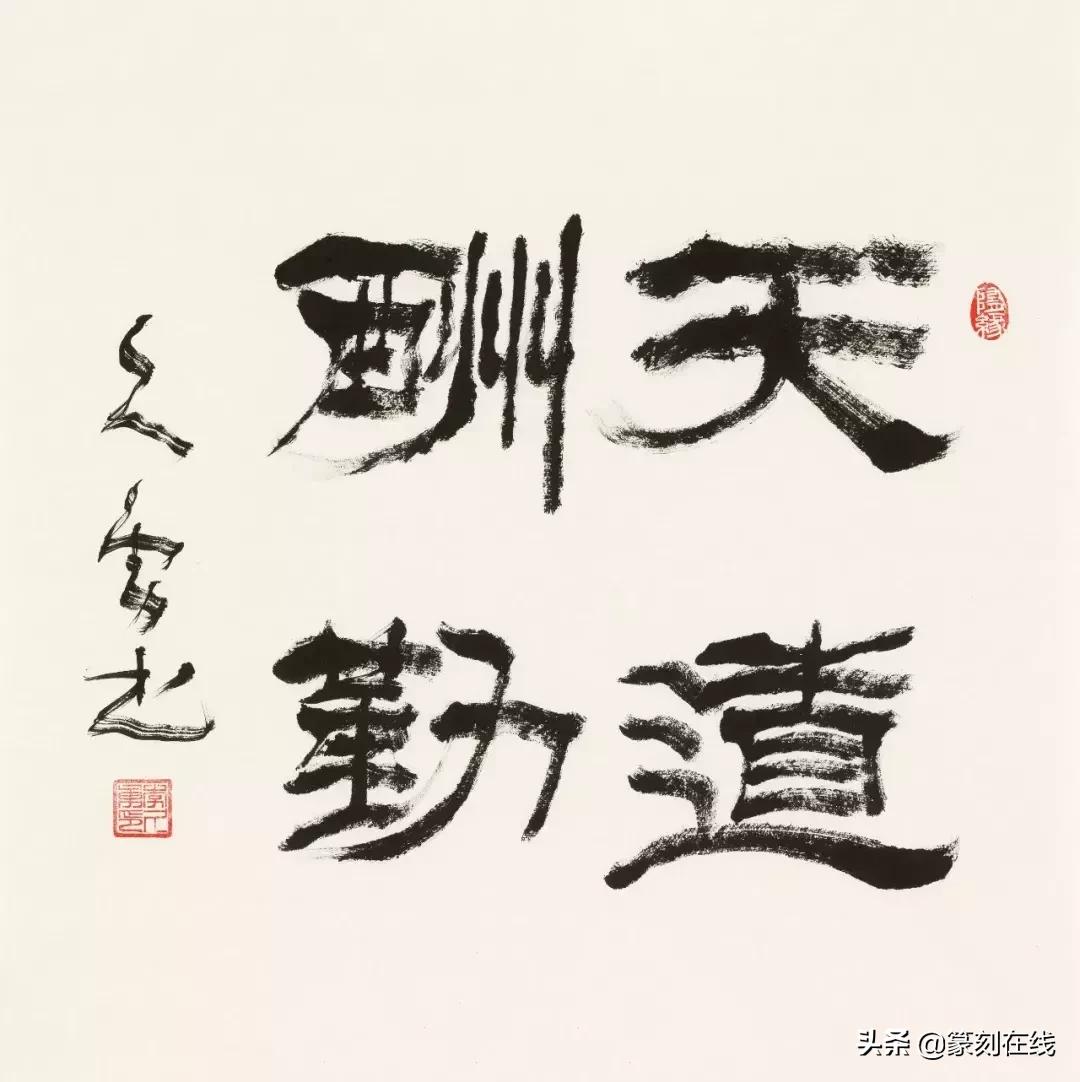 隨緣
天道
酬勤
头条 @篆刻在线